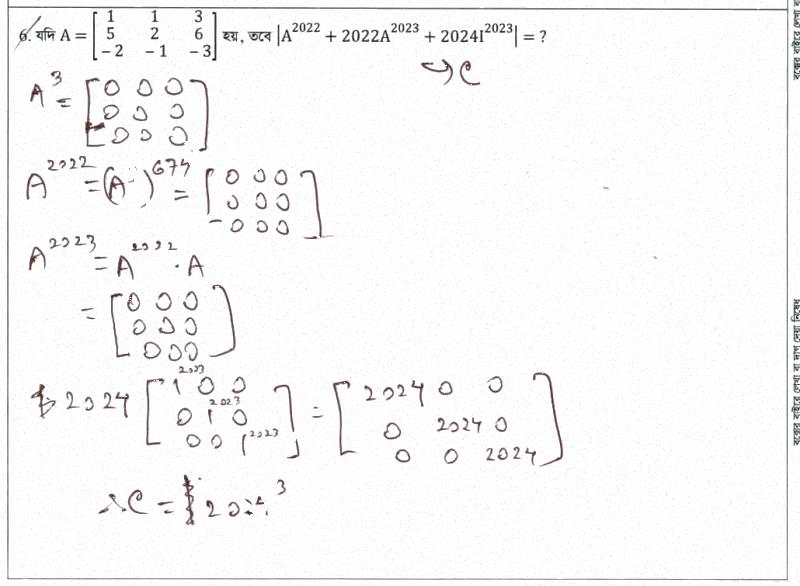 6. যদি A = [1 1 3
5 2 6
-2 -1 -3] হয়, তবে |A^2022 + 2022A^2023 + 2024I^2023| = ?
A^3 = [0 0 0
0 0 0
0 0 0]
A^2022 = (A )^674 = [0 0 0
0 0 0
0 0 0]
A^2023 = A^2022 . A
= [0 0 0
0 0 0
0 0 0]
2024 [1^2023 0 0
0 1^2023 0
0 0 1^2023] = [2024 0 0
0 2024 0
0 0 2024]
= 2024^3